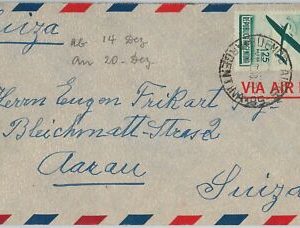 Suiza
ab 14 Dez
an 20-Dez
25
VIA AIR
Herrn Eugen Frikart
Bleichmatt-Strasse 2
Aarau
Suiza